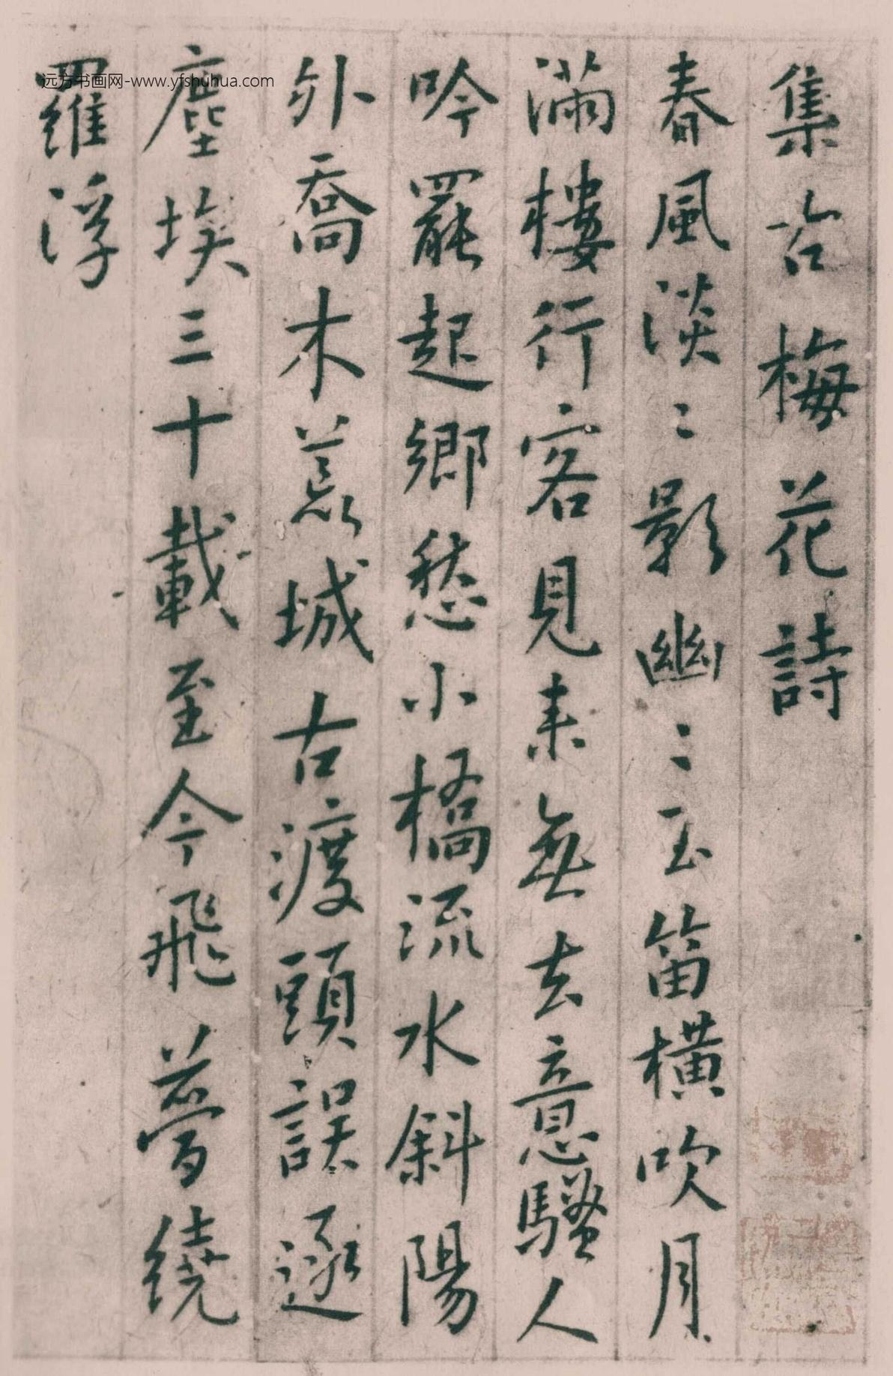 集古梅花詩
春風淡〻影幽〻玉笛橫吹月
滿樓行客見來無去意騷人
吟罷起鄉愁小橋流水斜陽
外喬木荒城古渡頭誤逐
塵埃三十載至今飛夢繞
羅浮
远方书画网-www.yfshuhua.com